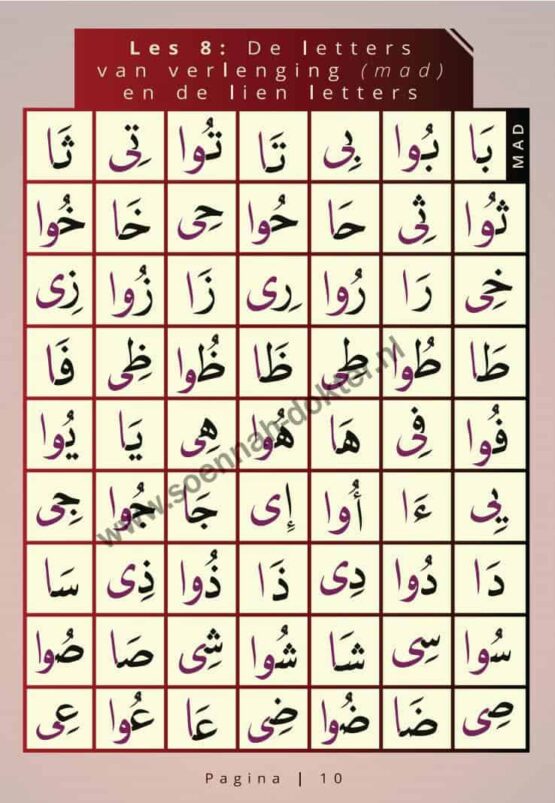 Les 8: De letters
van verlenging (mad)
en de lien letters
MAD
بَا بُوا بِى تَا تُوا تِى ثَا
ثُوا ثِى حَا حُوا حِى خَا خُوا
خِى رَا رُوا رِى زَا زُوا زِى
طَا طُوا طِى ظَا ظُوا ظِى فَا
فُوا فِى هَا هُوا هِى يَا يُوا
يِى ءَا أُوا إِى جَا جُوا جِى
دَا دُوا دِى ذَا ذُوا ذِى سَا
سُوا سِى شَا شُوا شِى صَا صُوا
صِى ضَا ضُوا ضِى عَا عُوا عِى
www.soennah-dokter.nl
Pagina | 10